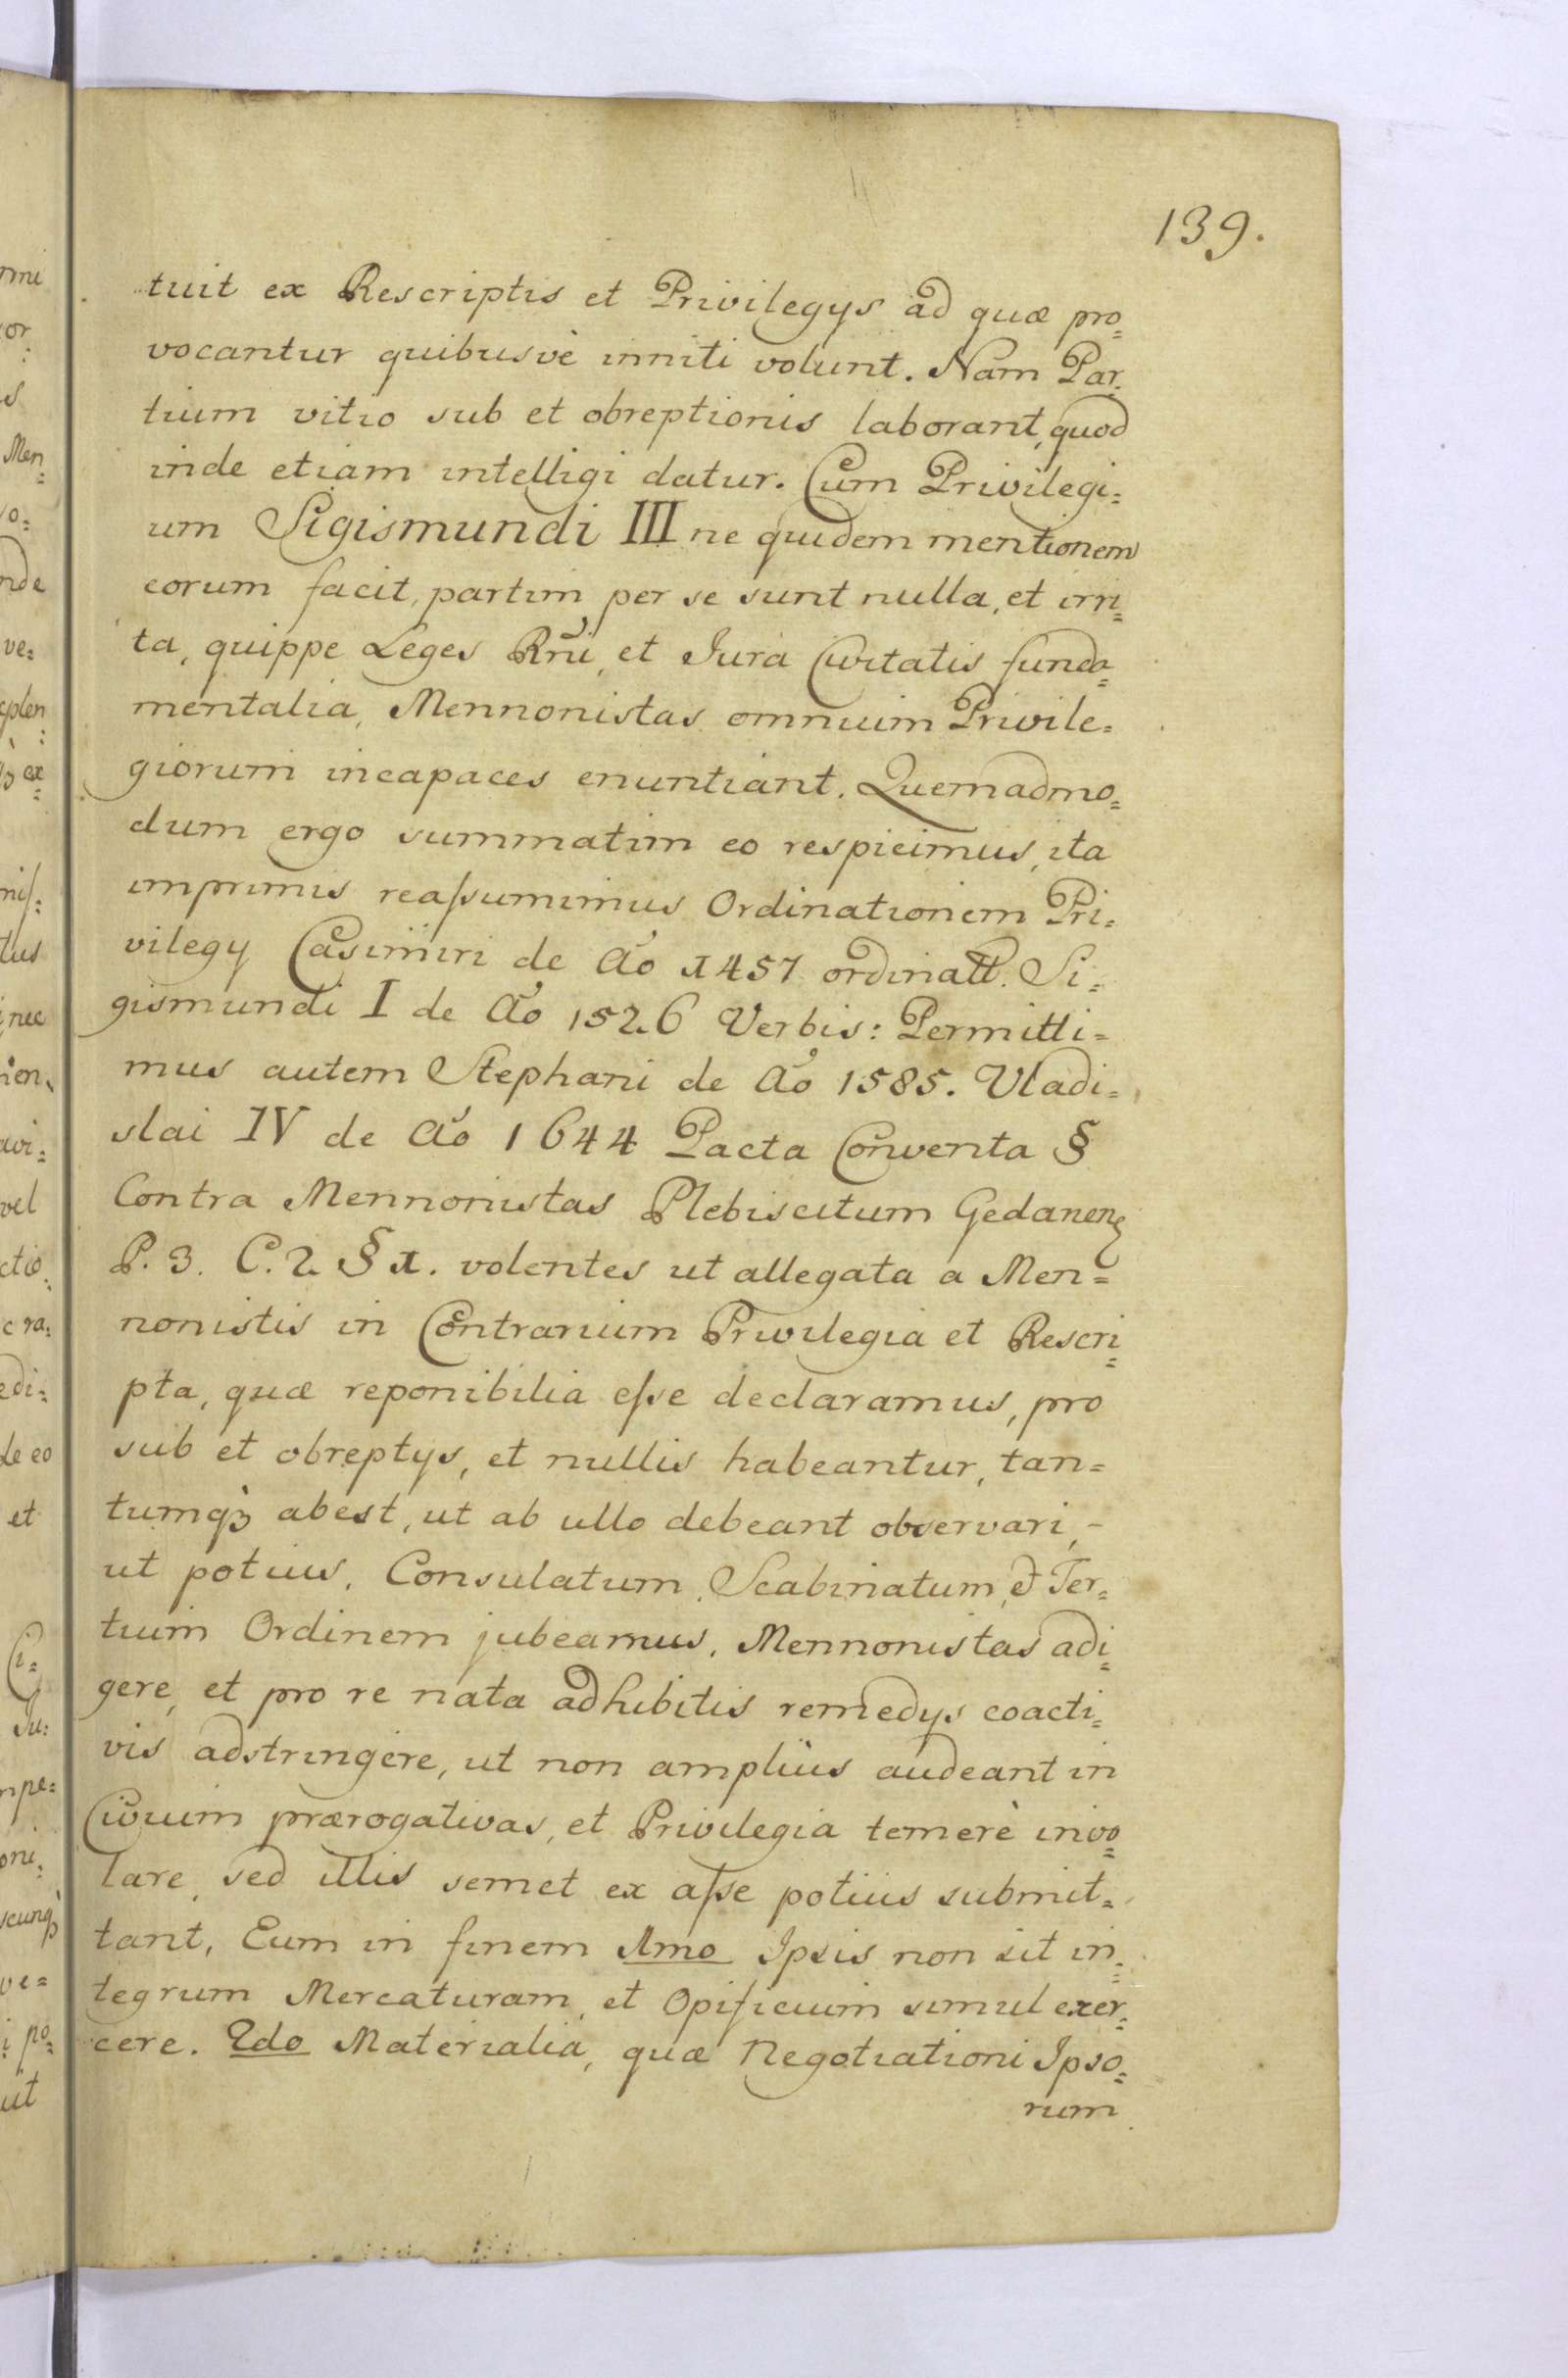 139.
tuit ex Rescriptis et Privilegys ad quæ pro=
vocantur quibusvè inniti volunt. Nam Par=
tium vitio sub et obreptionis laborant, quod
inde etiam intelligi datur. Cum Privilegi=
um Sigismundi III ne quidem mentionem
eorum facit, partim per se sunt nulla, et irri=
ta, quippe Leges Rñi, et Jura Civitatis funda=
mentalia, Mennonistas omnium Privile=
giorum incapaces enuntiant. Quemadmo=
dum ergo summatim eo respicimus, ita
imprimis reaſsumimus Ordinationem Pri=
vilegy Casimiri de Ao 1457 ordinatt. Si=
gismundi I de Ao 1526 Verbis: Permitti=
mus autem Stephani de Ao 1585. Vladi=
slai IV de Ao 1644 Pacta Conventa §
Contra Mennonistas Plebiscitum Gedanens
P. 3. C. 2. § 1. volentes ut allegata a Men=
nonistis in Contrarium Privilegia et Rescri=
pta, quæ reponibilia eſse declaramus, pro
sub et obreptys, et nullis habeantur, tan=
tumqꝫ abest, ut ab ullo debeant observari, -
ut potius, Consulatum, Scabinatum, et Ter=
tium Ordinem jubeamus, Mennonistas adi=
gere, et pro re nata adhibitis remedys coacti=
vis adstringere, ut non ampliùs audeant in
Civium prærogativas, et Privilegia temerè invo=
lare, sed illis semet ex aſse potius submit=
tant, Eum in finem 1mo Ipsis non sit in=
tegrum Mercaturam, et Opificium simul exer=
cere. 2do Materialia, quæ Negotiationi Ipso=
rum
mi
or
:
s
Men
=
o=
nde
ve=
plen
:
ꝫ ex
=
niſ=
tus
nec
ion
avi=
vel
ctio
c ra=
edi=
de eo
et
Ci=
Ju:
mpe=
oni
scunqꝫ
ve=
i po=
ut